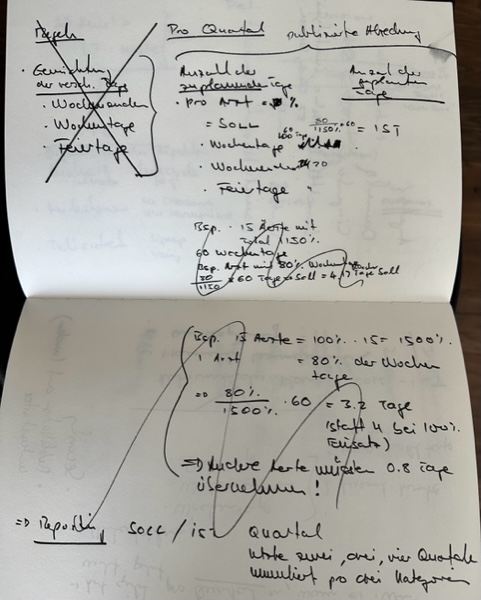 Regeln
· Gewichtung
der versch. Tage
· Wochenenden
· Wochentage
· Feiertage
Pro Quartal publizierte Abrechnung
Anzahl der
zu planende Tage
· pro Arzt = %
= SOLL
80/1150% · 60 = IST
· Wochentage
· Wochenenden 20
· Feiertage "
Anzahl der
geplanten
Tage
Bsp. · 15 Ärzte mit
Total 1150%.
60 Wochentage
Bsp. Arzt mit 80% Wochentage
80/1150 · 60 Tage = Soll = 4.17 Tage Soll
Bsp. 15 Aerzte = 100% · 15 = 1500%.
1 Arzt = 80% der Wochen
tage
=> 80%/1500% · 60 = 3.2 Tage
(statt 4 bei 100%
Einsatz)
=> Andere Aerzte müssen 0.8 Tage
übernehmen!
=> Reporting SOLL / IST Quartal
letzte zwei, drei, vier Quartale
kumuliert pro drei Kategorien